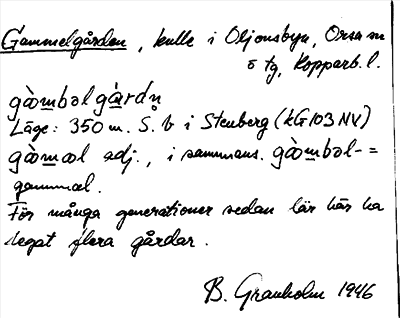 Gammelgården, kulle i Oljonsbyn, Orsa sn
o tg, Kopparb. l.
gòmbəlgàrdn̥
Läge: 350 m. S. b i Stenberg (kG103 NV)
gòmæl adj., i sammans. gòmbəl- =
gammæl.
För många generationer sedan lär här ha
legat flera gårdar.
B. Granholm 1946